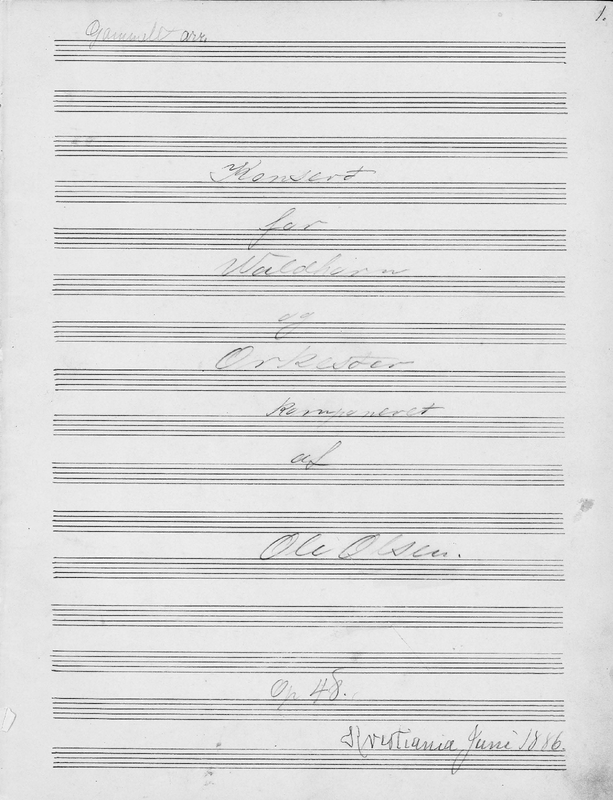 1.
Gammelt arr.
Konsert
for
Waldhorn
og
Orkester
komponeret
af
Ole Olsen.
Op 48.
Kristiania Juni 1886.